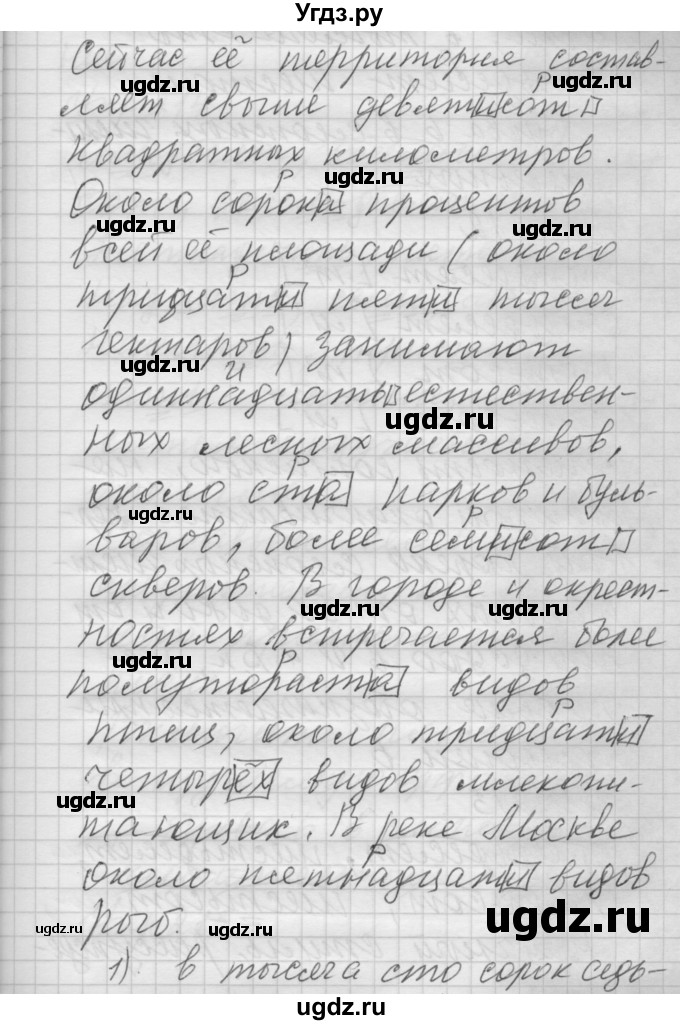 Угдз.ру
Сейчас её территория состав-
ляет свыше девятисот
квадратных километров.
Около сорока процентов
всей её площади (около
тридцати пяти тысяч
гектаров) занимают
одиннадцать естествен-
ных лесных массивов,
около ста парков и буль-
варов, более семисот
скверов. В городе и окрест-
ностях встречается более
полутораста видов
птиц, около тридцати
четырёх видов млекопи-
тающик. В реке Москве
около пятнадцати видов
рыб.
1). в тысяча сто сорок седь-
ugdz.ru